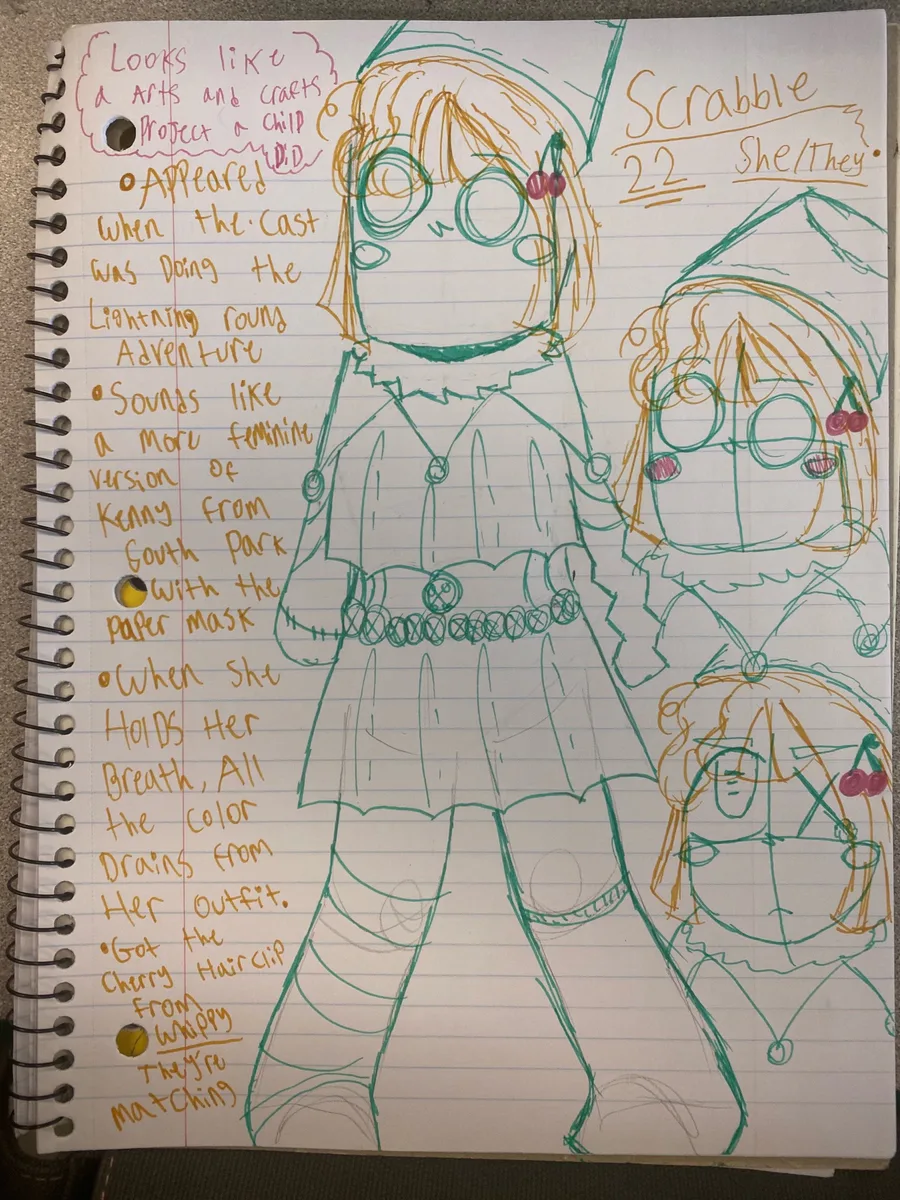 Looks like
a Arts and crafts
Project a child
DiD
Scrabble
22 She/They
•Appeared
when the cast
was Doing the
Lightning round
Adventure
•Sounds like
a more feminine
version of
Kenny from
South Park
with the
paper mask
•When She
Holds Her
Breath, All
the color
Drains from
Her outfit.
•Got the
Cherry Hairclip
From
Whippy
They're
matching